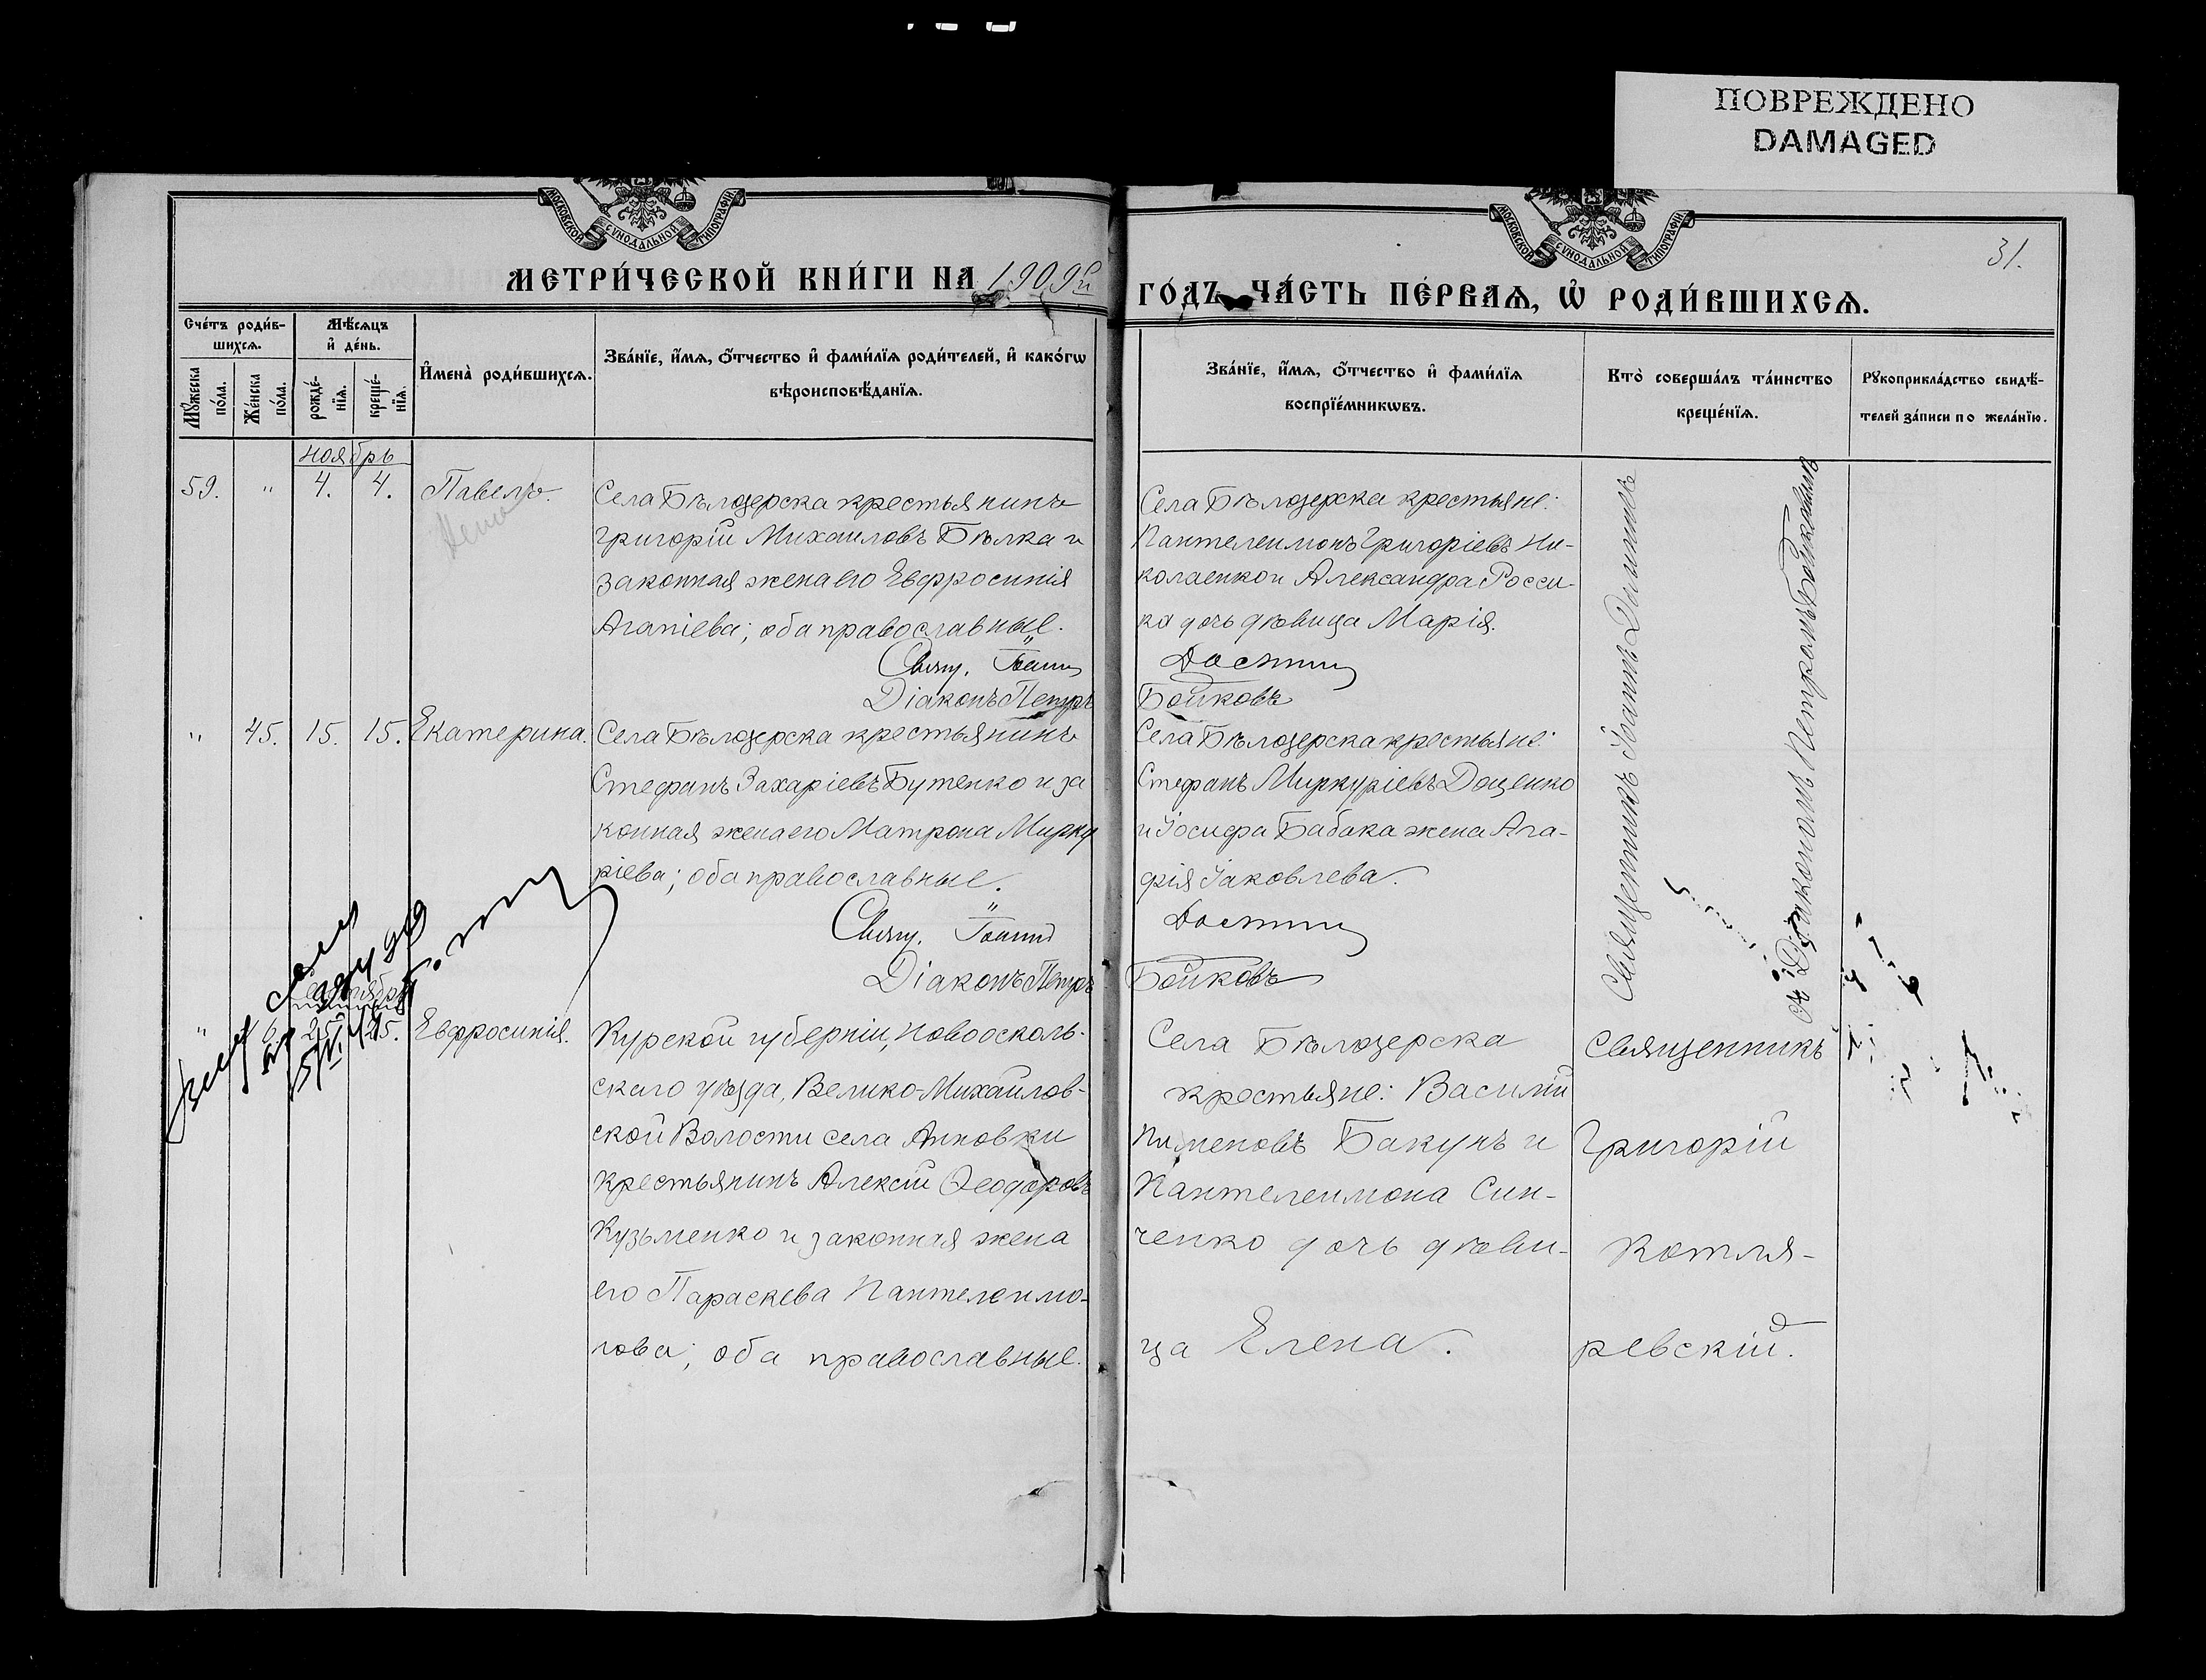 ПОВРЕЖДЕНО
DAMAGED
МОСКОВСКОЙ СѴНОДАЛЬНОЙ ТИПОГРАФІИ
МОСКОВСКОЙ СѴНОДАЛЬНОЙ ТИПОГРАФІИ
31.
МЕТРИ́ЧЕСКОЙ КНИ́ГИ НА 1909й
ГО́ДЪ ЧА́СТЬ ПЕ́РВАѦ, Ѡ҆ РОДИ́ВШИХСѦ.
Сче́тъ роди́в-
шихсѧ.
Мꙋ́жеска
по́ла.
Же́нска
по́ла.
Мѣ́сѧцъ
и҆ де́нь.
рожде́-
нїѧ.
креще́-
нїѧ.
И҆мена̀ роди́вшихсѧ.
Зва́нїе, и҆́мѧ, ѻ҆́тчество и҆ фами́лїѧ роди́телей, и҆ како́гѡ
вѣроисповѣ́данїѧ.
Зва́нїе, и҆́мѧ, ѻ҆́тчество и҆ фами́лїѧ
воспрїе́мникѡвъ.
Кто̀ соверша́лъ та́инство
креще́нїѧ.
Рꙋкоприкла́дство свидѣ́-
телей за́писи по жела́нїю.
ноябрь
59. " 4. 4. Павелъ.
Села Бѣлозерска крестьянинъ
Григорій Михаиловъ Бѣлка и
законная жена его Евфросинія
Агапіева; оба православные.
Свящ. Іоаннъ
Діаконъ Петръ
Села Бѣлозерска крестьяне:
Пантелеимонъ Григоріевъ Ни-
колаенко и Александра Росси-
ка дочь дѣвица Марія.
Бойковъ
Священникъ Іоаннъ
съ Діакономъ Петромъ Бойковымъ
" 45. 15. 15. Екатерина.
Села Бѣлозерска крестьянинъ
Стефанъ Захаріевъ Бутенко и за
конная жена его Матрона Мирку
ріева; оба православные.
Свящ. Іоаннъ
Діаконъ Петръ
Села Бѣлозерска крестьяне:
Стефанъ Миркуріевъ Доценко
и Іосифа Бабака жена Ага-
фія Іаковлева.
Бойковъ
" 25. Евфросинія.
Курской губерніи, Новоосколь-
скаго уѣзда, Велико-Михайлов-
ской Волости села Анновки
крестьянинъ Алексій Ѳеодоровъ
Кузьменко и законная жена
его Параскева Пантелеимо-
нова; оба православные.
Села Бѣлозерска
крестьяне: Василій
Пименовъ Бакунъ и
Пантелеимона Син-
ченко дочь дѣви-
ца Елена.
Священникъ
Григорій
Котля-
ревскій.